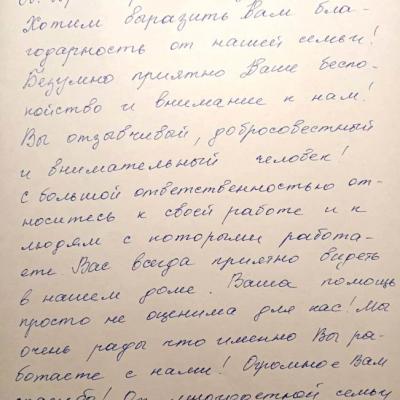 Хотим выразить Вам бла-
годарность от нашей семьи!
Безумно приятно Ваше беспо-
койство и внимание к нам!
Вы отзывчивый, добросовестный
и внимательный человек!
с большой ответственностью от-
носитесь к своей работе и к
людям с которыми работа-
ете. Вас всегда приятно видеть
в нашем доме. Ваша помощь
просто не оценима для нас! Мы
очень рады что именно Вы ра-
ботаете с нами! Огромное Вам
спасибо! От многодетной семьи